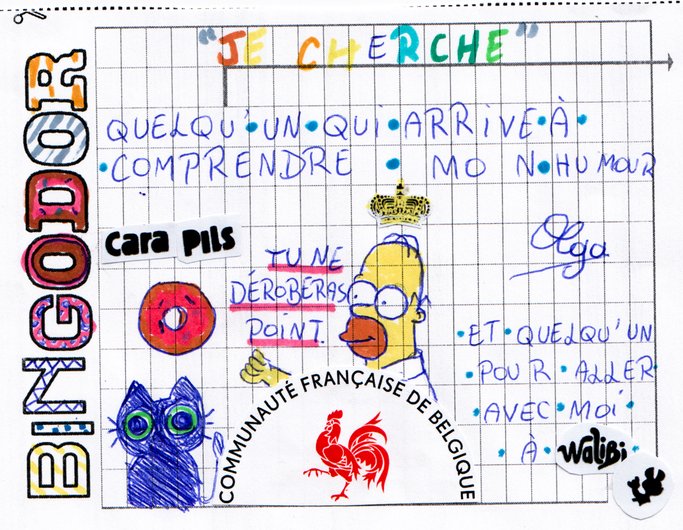 BINGODOR
"JE CHERCHE"
QUELQU'UN•QUI•ARRIVE•À•
•COMPRENDRE • MON•HUMOUR
cara pils
TU NE
DÉROBERAS
POINT.
Olga
•ET•QUELQU'UN
•POUR•ALLER
•AVEC•MOI•
•À• WaLiBi
COMMUNAUTÉ FRANÇAISE DE BELGIQUE